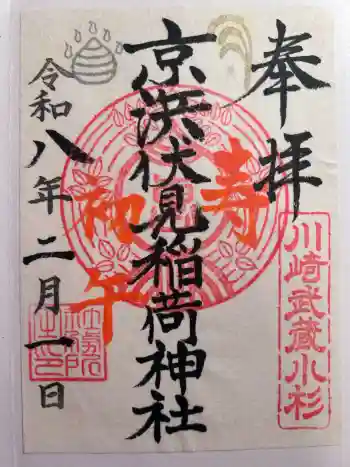 奉拝
川崎武蔵小杉
寿
京浜伏見稲荷神社
初午
令和八年二月一日
社務所之印